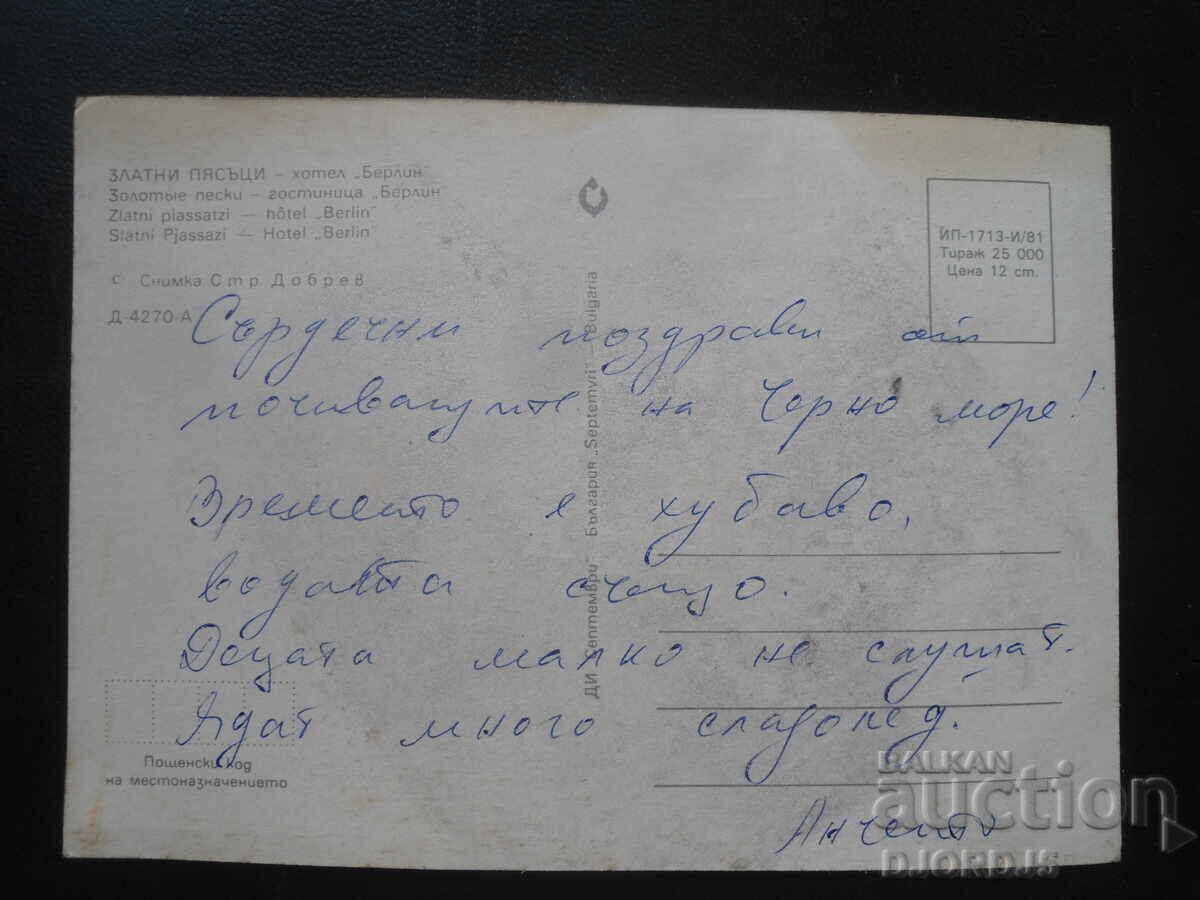 ЗЛАТНИ ПЯСЪЦИ – хотел „Берлин"
Золотые пески – гостиница „Берлин"
Zlatni piassatzi — hôtel „Berlin"
Slatni Pjassazi — Hotel „Berlin"
© Снимка Стр. Добрев
Д-4270-А
ИП-1713-И/81
Тираж 25 000
Цена 12 ст.
ДИ „Септември" България „Septemvri" — Bulgaria
Сърдечни поздрави от
почиващите на Черно море!
Времето е хубаво,
водата също.
Децата малко не слушат.
Ядат много сладолед.
Анчето
Пощенски код
на местоназначението
BALKAN
auction
DJORDJ5